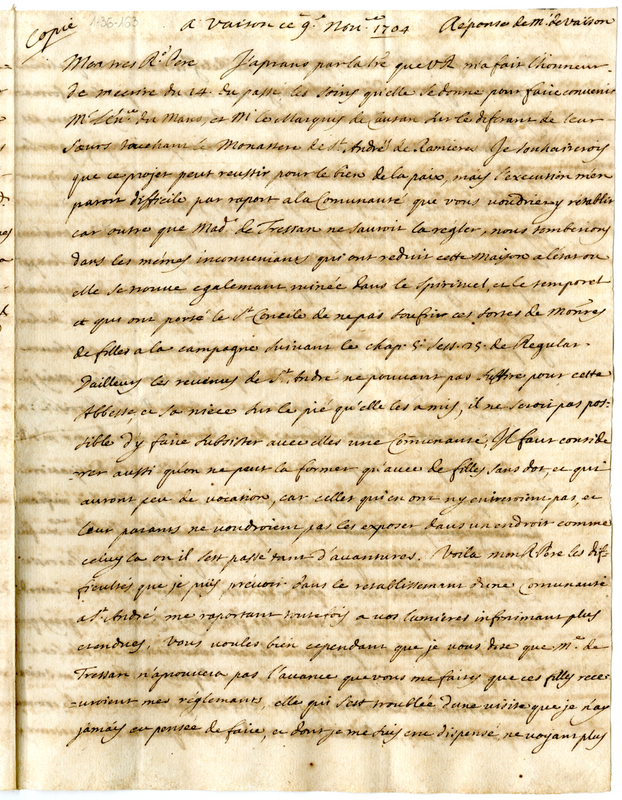 Copie 1-36-163 A Vaison ce 9e Novre 1704 Reponse de mr de Vaison
Mon tres Rd Pere J'aprans par la lre que V R m'a fait l'honneur
de m'ecrire du 24 du passé les soins qu'elle se donne pour faire convenir
Mr l'Ev. du Mans, et Mr le Marquis de Causan sur le diferant de leur
sœurs touchant le Monastere de St André de Ramiere. Je souhaiterois
que ce projet peut reussir pour le bien de la paix, mais l'execution m'en
paroit difficile par raport a la Comunauté que vous voudriez y retablir
car outre que Made de Tressan ne sauroit la regler, nous tomberions
dans les mémes inconveniants qui ont reduit cette Maison a l'estat ou
elle se trouve egalemant ruinée dans le spirituel, et le temporel
et qui ont porté le St Concile de ne pas soufrir ces sortes de Monres
de filles a la campagne suivant le chap. 5. sess. 25. de Regular.
D'ailleurs les revenus de St André ne pouvant pas sufire pour cette
Abbesse et sa niece sur le pié qu'elle les a mis, il ne seroit pas pos-
sible d'y faire subsister avec elles une Comunauté, Il faut conside
rer aussi qu'on ne peut la former qu'avec de filles sans dot, et qui
auront peu de vocation, car celles qui en ont n'y entreroint pas, et
leur parants ne voudroient pas les exposer dans un endroit comme
celuy la ou il s'est passé tant d'avantures. Voila mon R Pere les dif-
ficultés que je puis prevoir dans le retablissemant d'une Comunauté
a St André, me raportant toutefois a vos lumieres infinimant plus
etendues. Vous voules bien cependant que je vous dise que Me de
Tressan n'aprouvera pas l'avance que vous me faites que ces filles rece-
-vroient mes réglemants, elle qui s'est troublée d'une visite que je n'ay
jamais eu pensée de faire, et dont je me suis cru dispensé ne voyant plus